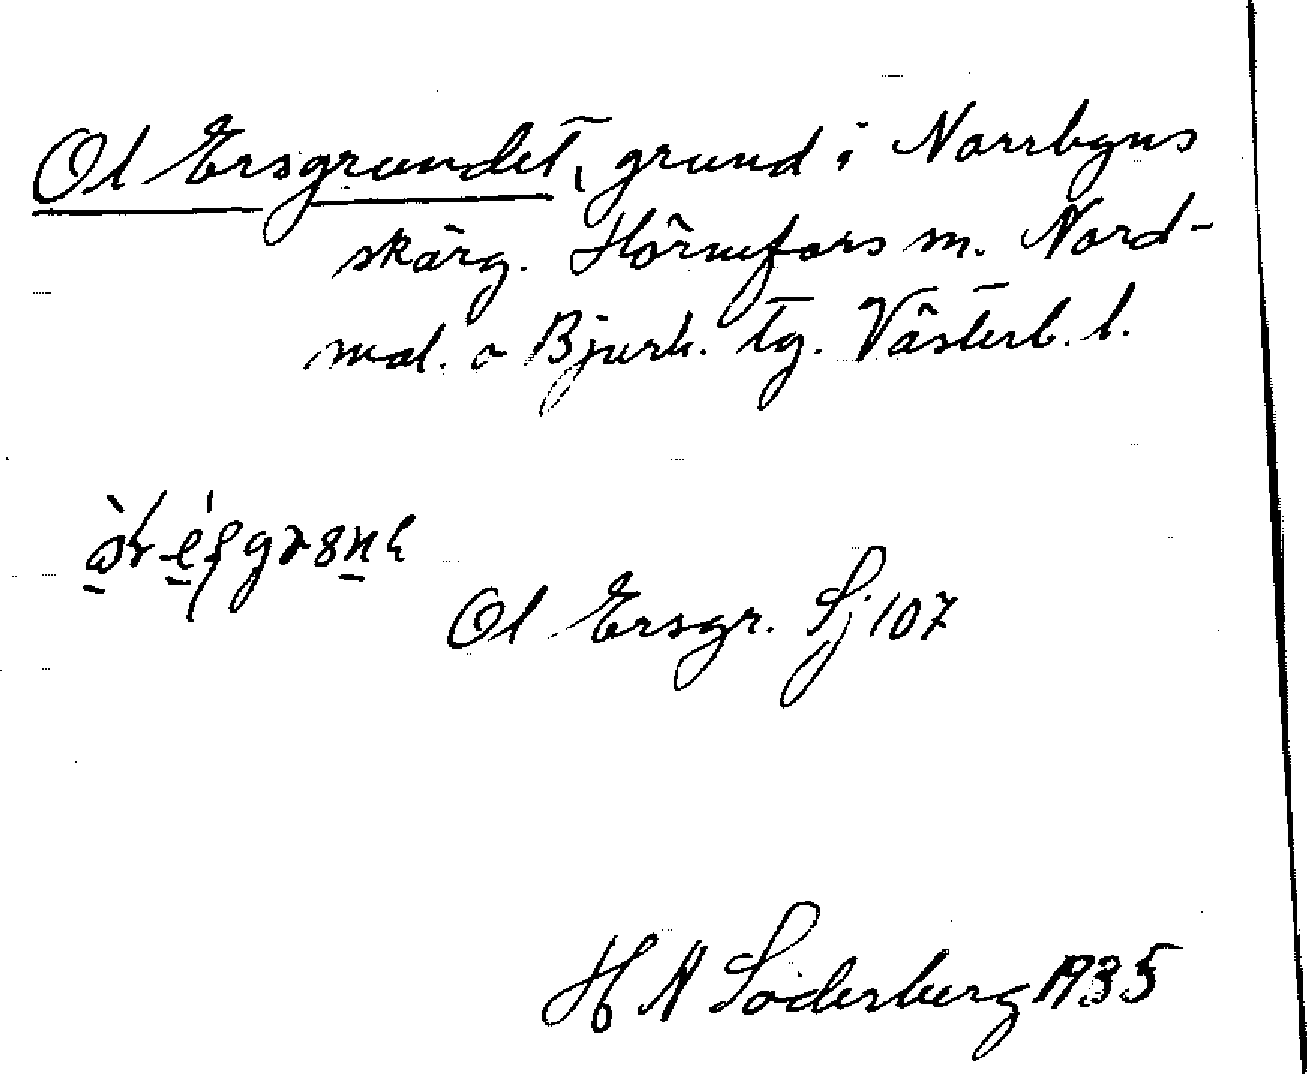 Ol Ersgrundet, grund i Norrbyns
skärg. Hörnefors m. Nord-
mal. o Bjurh. tg. Västerb. l.
Ol Ersgr. Sj 107
H N Söderberg 1935